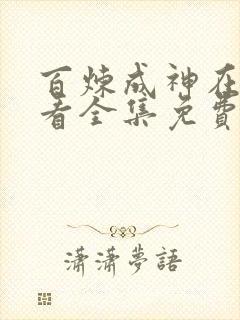 百炼成神在
看全集免費
潇潇夢語